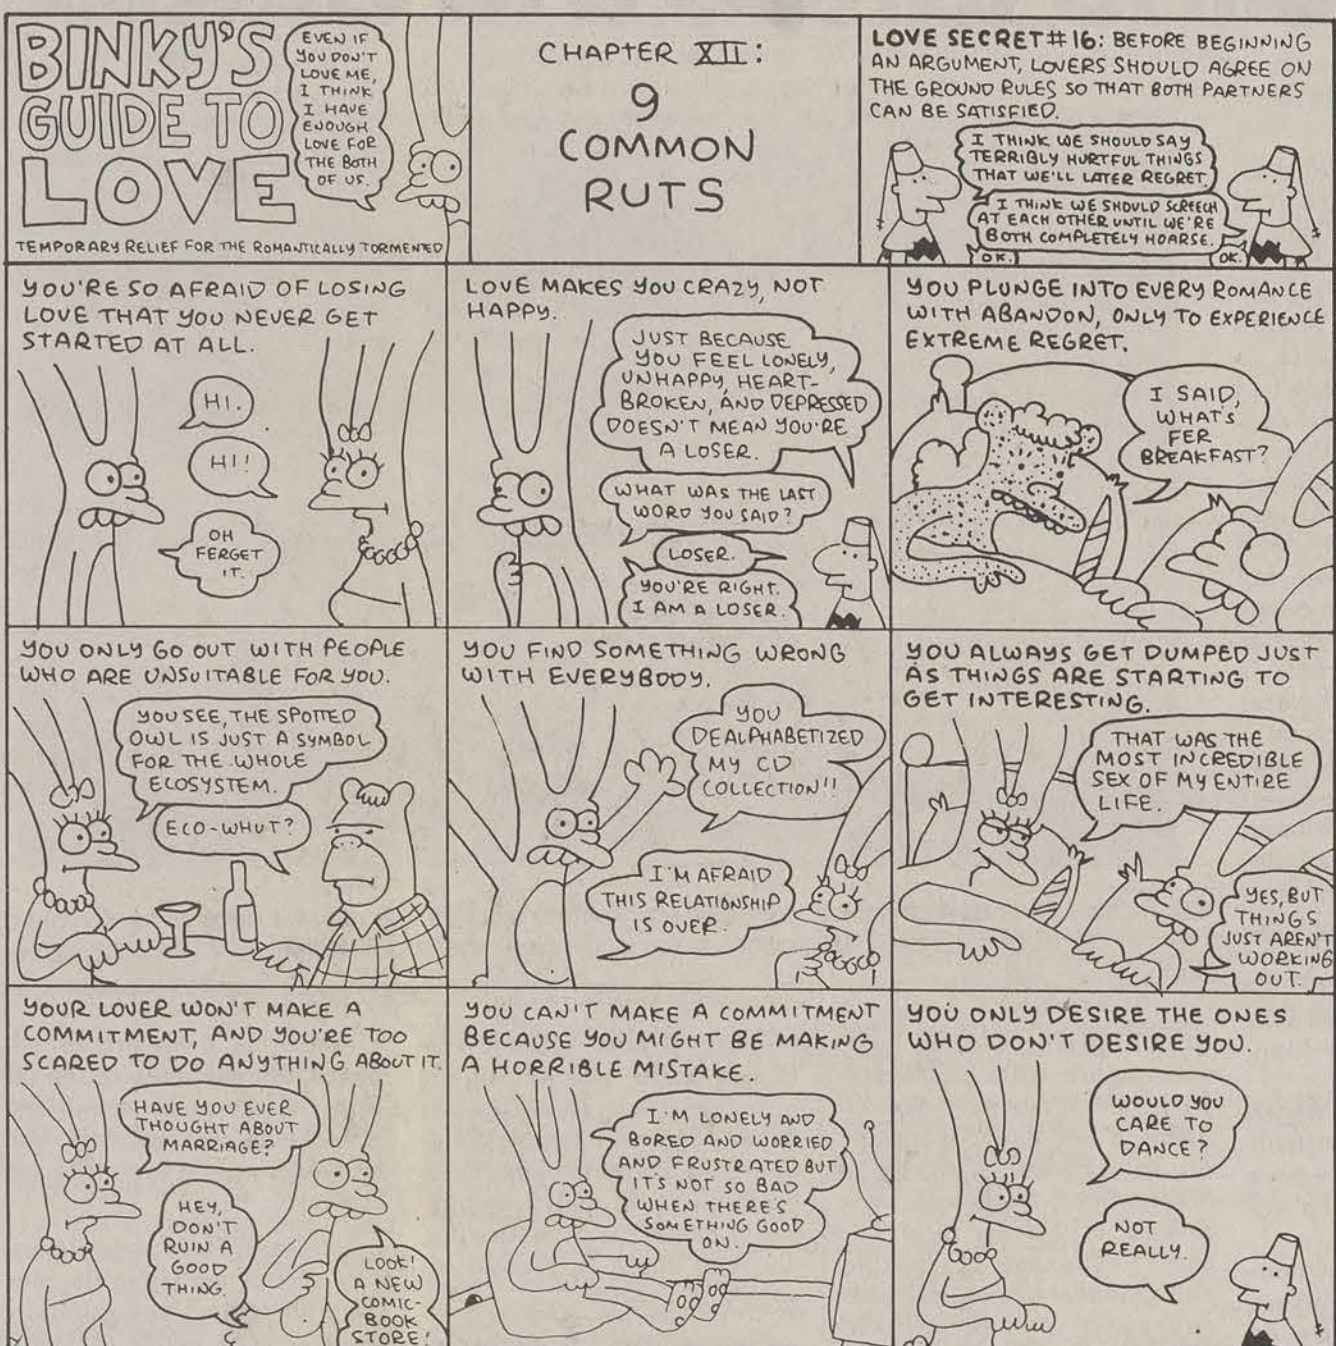 BINKY'S
GUIDE TO
LOVE
EVEN IF
YOU DON'T
LOVE ME,
I THINK
I HAVE
ENOUGH
LOVE FOR
THE BOTH
OF US.
TEMPORARY RELIEF FOR THE ROMANTICALLY TORMENTED
CHAPTER XII:
9
COMMON
RUTS
LOVE SECRET #16: BEFORE BEGINNING
AN ARGUMENT, LOVERS SHOULD AGREE ON
THE GROUND RULES SO THAT BOTH PARTNERS
CAN BE SATISFIED.
I THINK WE SHOULD SAY
TERRIBLY HURTFUL THINGS
THAT WE'LL LATER REGRET.
I THINK WE SHOULD SCREECH
AT EACH OTHER UNTIL WE'RE
BOTH COMPLETELY HOARSE.
OK.
OK.
YOU'RE SO AFRAID OF LOSING
LOVE THAT YOU NEVER GET
STARTED AT ALL.
HI.
HI!
OH
FERGET
IT.
LOVE MAKES YOU CRAZY, NOT
HAPPY.
JUST BECAUSE
YOU FEEL LONELY,
UNHAPPY, HEART-
BROKEN, AND DEPRESSED
DOESN'T MEAN YOU'RE
A LOSER.
WHAT WAS THE LAST
WORD YOU SAID?
LOSER.
YOU'RE RIGHT.
I AM A LOSER.
YOU PLUNGE INTO EVERY ROMANCE
WITH ABANDON, ONLY TO EXPERIENCE
EXTREME REGRET.
I SAID,
WHAT'S
FER
BREAKFAST?
YOU ONLY GO OUT WITH PEOPLE
WHO ARE UNSUITABLE FOR YOU.
YOU SEE, THE SPOTTED
OWL IS JUST A SYMBOL
FOR THE WHOLE
ECOSYSTEM.
ECO-WHUT?
YOU FIND SOMETHING WRONG
WITH EVERYBODY.
YOU
DEALPHABETIZED
MY CD
COLLECTION!!
I'M AFRAID
THIS RELATIONSHIP
IS OVER.
YOU ALWAYS GET DUMPED JUST
AS THINGS ARE STARTING TO
GET INTERESTING.
THAT WAS THE
MOST INCREDIBLE
SEX OF MY ENTIRE
LIFE.
YES, BUT
THINGS
JUST AREN'T
WORKING
OUT.
YOUR LOVER WON'T MAKE A
COMMITMENT, AND YOU'RE TOO
SCARED TO DO ANYTHING ABOUT IT.
HAVE YOU EVER
THOUGHT ABOUT
MARRIAGE?
HEY,
DON'T
RUIN A
GOOD
THING.
LOOK!
A NEW
COMIC-
BOOK
STORE!
YOU CAN'T MAKE A COMMITMENT
BECAUSE YOU MIGHT BE MAKING
A HORRIBLE MISTAKE.
I'M LONELY AND
BORED AND WORRIED
AND FRUSTRATED BUT
IT'S NOT SO BAD
WHEN THERE'S
SOMETHING GOOD
ON.
YOU ONLY DESIRE THE ONES
WHO DON'T DESIRE YOU.
WOULD YOU
CARE TO
DANCE?
NOT
REALLY.